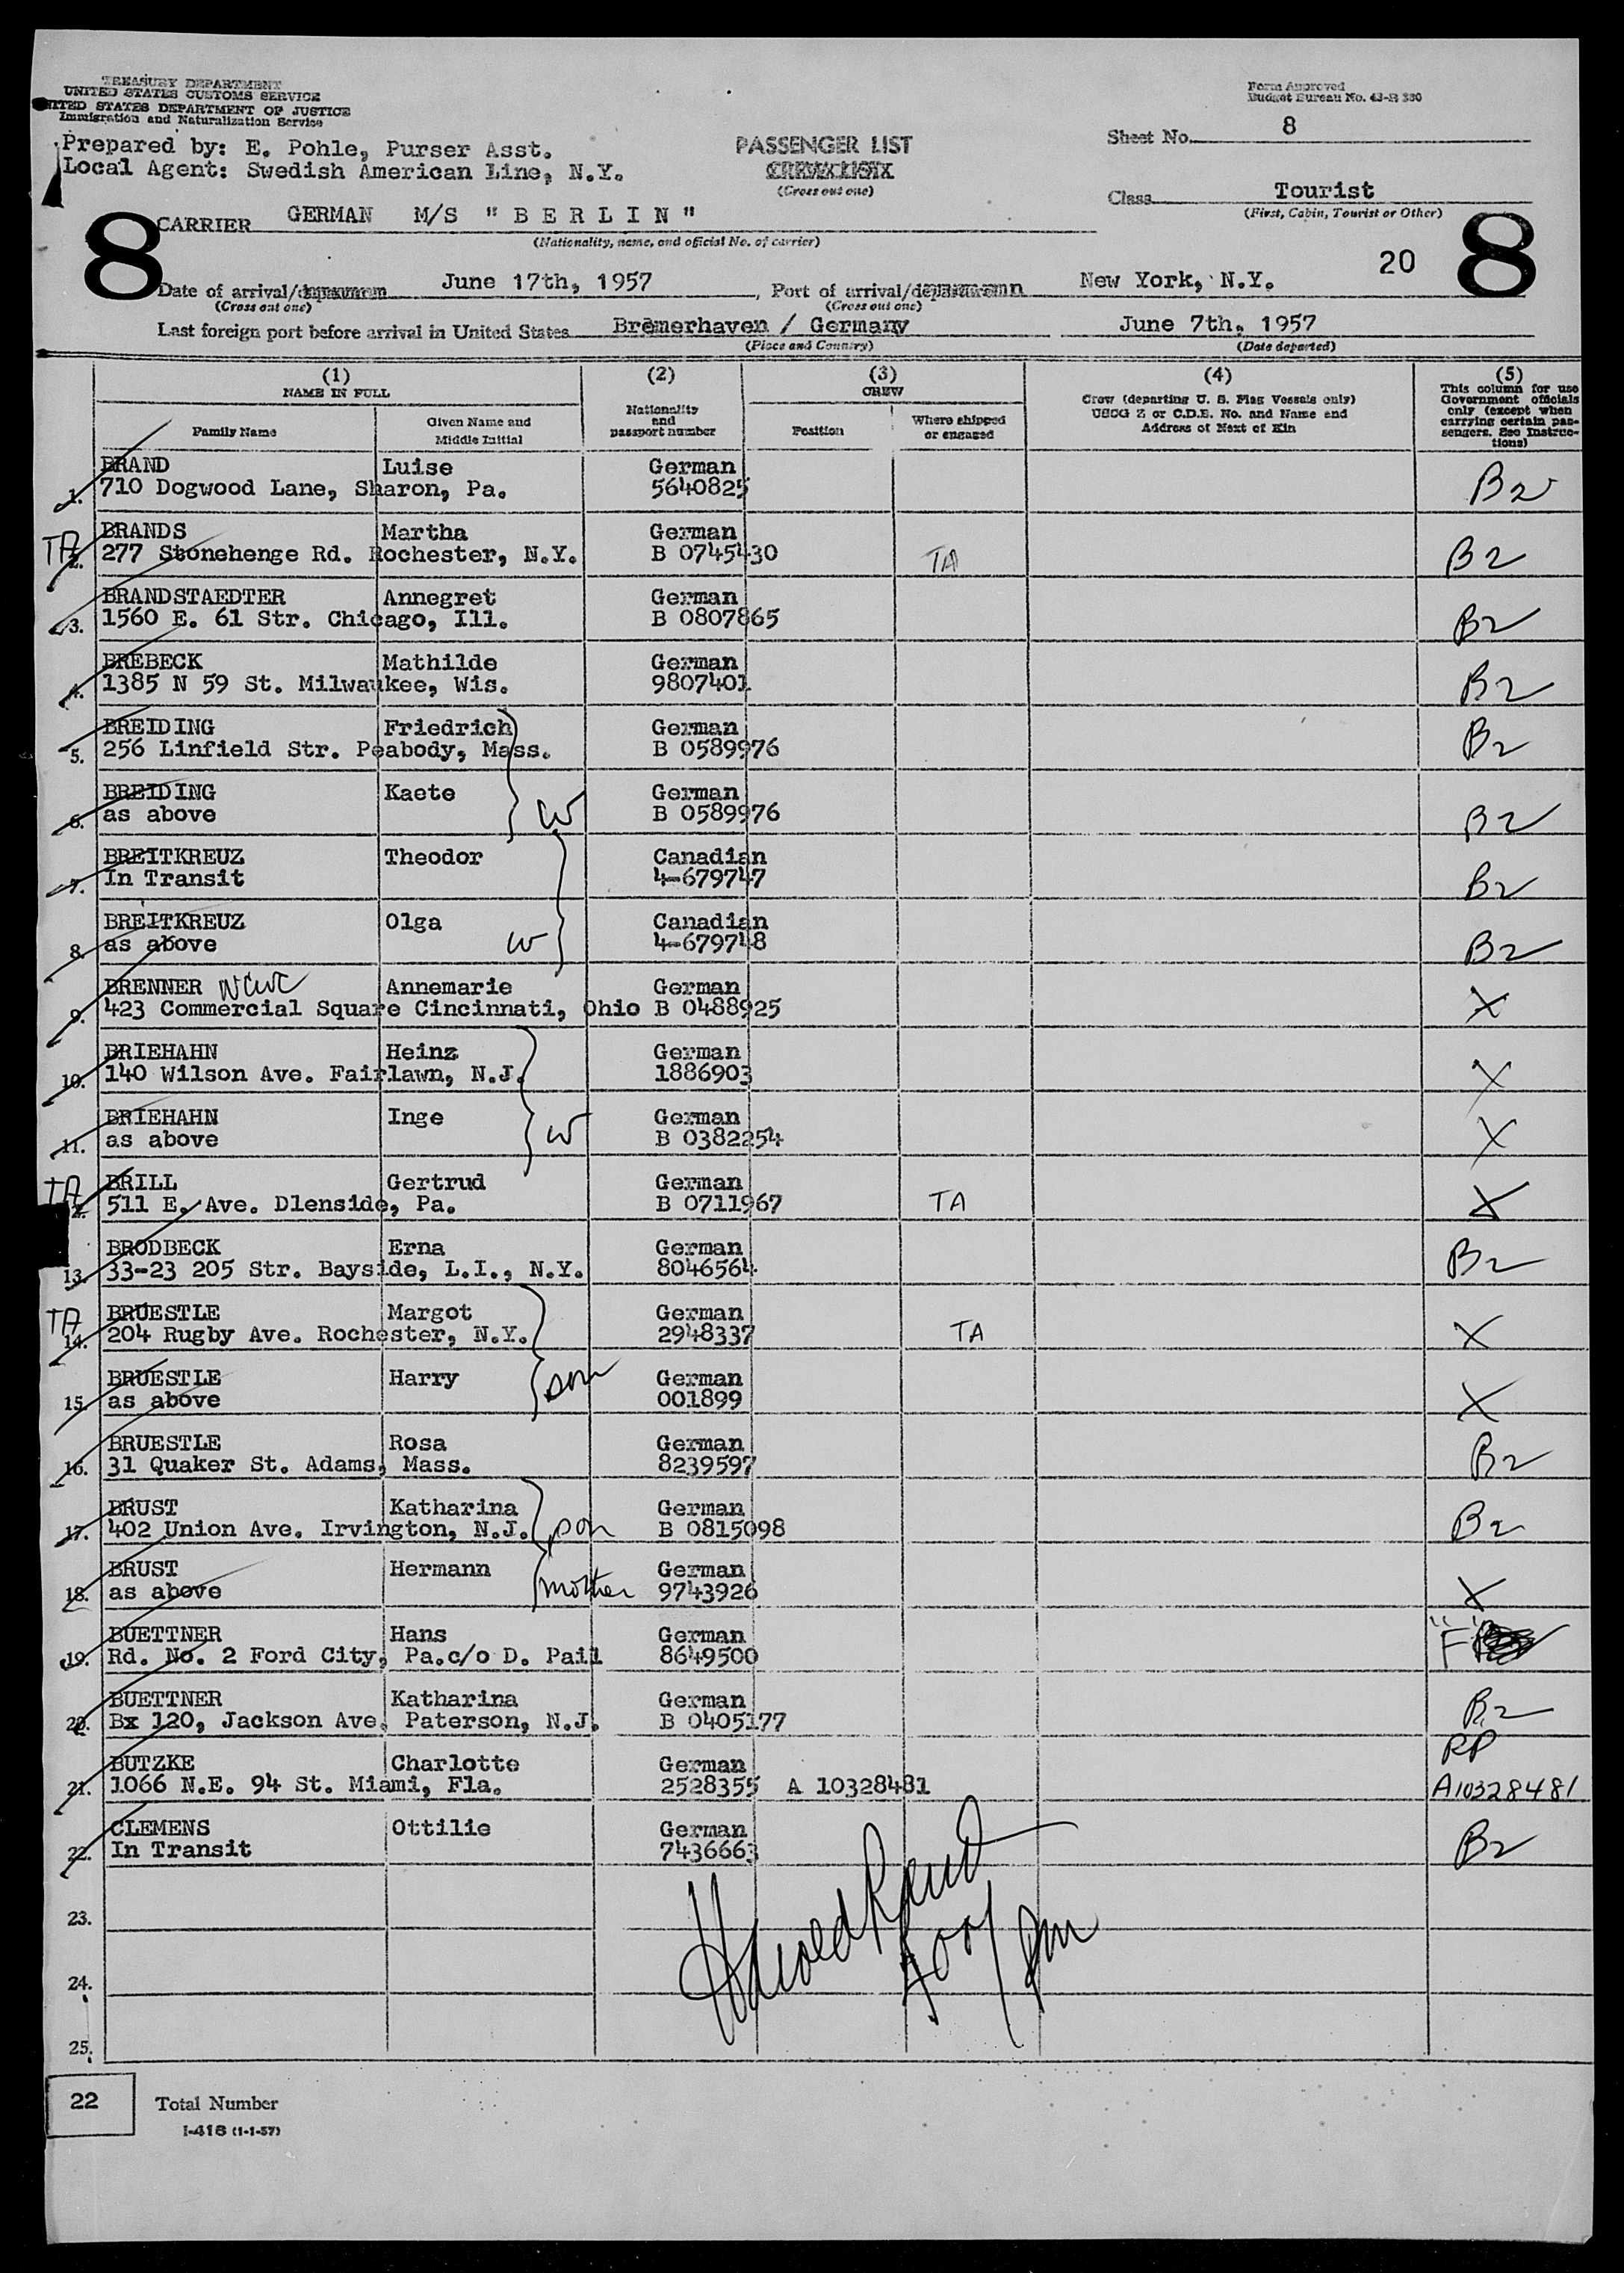 TREASURY DEPARTMENT
UNITED STATES CUSTOMS SERVICE
UNITED STATES DEPARTMENT OF JUSTICE
Immigration and Naturalization Service
Form Approved
Budget Bureau No. 43-R 330
Prepared by: E. Pohle, Purser Asst.
Local Agent: Swedish American Line, N.Y.
PASSENGER LIST
CREW LIST
(Cross out one)
Sheet No. 8
Class Tourist
(First, Cabin, Tourist or Other)
8 CARRIER GERMAN M/S "BERLIN" 8
(Nationality, name, and official No. of carrier)
20
Date of arrival/departure June 17th, 1957, Port of arrival/departure New York, N.Y.
(Cross out one) (Cross out one)
Last foreign port before arrival in United States Bremerhaven / Germany June 7th, 1957
(Place and Country) (Date departed)
(1) NAME IN FULL
Family Name
Given Name and Middle Initial
(2) Nationality and passport number
(3) CREW
Position
Where shipped or engaged
(4) Crew (departing U. S. Flag Vessels only) USCG Z or C.D.B. No. and Name and Address of Next of Kin
(5) This column for use Government officials only (except when carrying certain passengers. See Instructions)
BRAND Luise German
1. 710 Dogwood Lane, Sharon, Pa. 5640825 B2
TA BRANDS Martha German
2. 277 Stonehenge Rd. Rochester, N.Y. B 0745430 TA B2
BRANDSTAEDTER Annegret German
3. 1560 E. 61 Str. Chicago, Ill. B 0807865 B2
BREBECK Mathilde German
4. 1385 N 59 St. Milwaukee, Wis. 9807401 B2
BREIDING Friedrich German
5. 256 Linfield Str. Peabody, Mass. B 0589976 B2
BREIDING Kaete German
6. as above W B 0589976 B2
BREITKREUZ Theodor Canadian
7. In Transit 4-679747 B2
BREITKREUZ Olga Canadian
8. as above W 4-679748 B2
BRENNER NCWC Annemarie German
9. 423 Commercial Square Cincinnati, Ohio B 0488925 X
BRIEHAHN Heinz German
10. 140 Wilson Ave. Fairlawn, N.J. 1886903 X
BRIEHAHN Inge German
11. as above W B 0382254 X
TA BRILL Gertrud German
12. 511 E. Ave. Dlenside, Pa. B 0711967 TA X
BRODBECK Erna German
13. 33-23 205 Str. Bayside, L.I., N.Y. 8046564 B2
TA BRUESTLE Margot German
14. 204 Rugby Ave. Rochester, N.Y. 2948337 TA X
BRUESTLE Harry son German
15. as above 001899 X
BRUESTLE Rosa German
16. 31 Quaker St. Adams, Mass. 8239597 B2
BRUST Katharina German
17. 402 Union Ave. Irvington, N.J. son B 0815098 B2
BRUST Hermann German
18. as above mother 9743926 X
BUETTNER Hans German
19. Rd. No. 2 Ford City, Pa.c/o D. Pail 8649500 "F"
BUETTNER Katharina German
20. Bx 120, Jackson Ave. Paterson, N.J. B 0405177 B2
BUTZKE Charlotte German RP
21. 1066 N.E. 94 St. Miami, Fla. 2528355 A 10328481 A10328481
CLEMENS Ottilie German
22. In Transit 7436663 B2
23.
24.
25.
22 Total Number
I-418 (1-1-57)